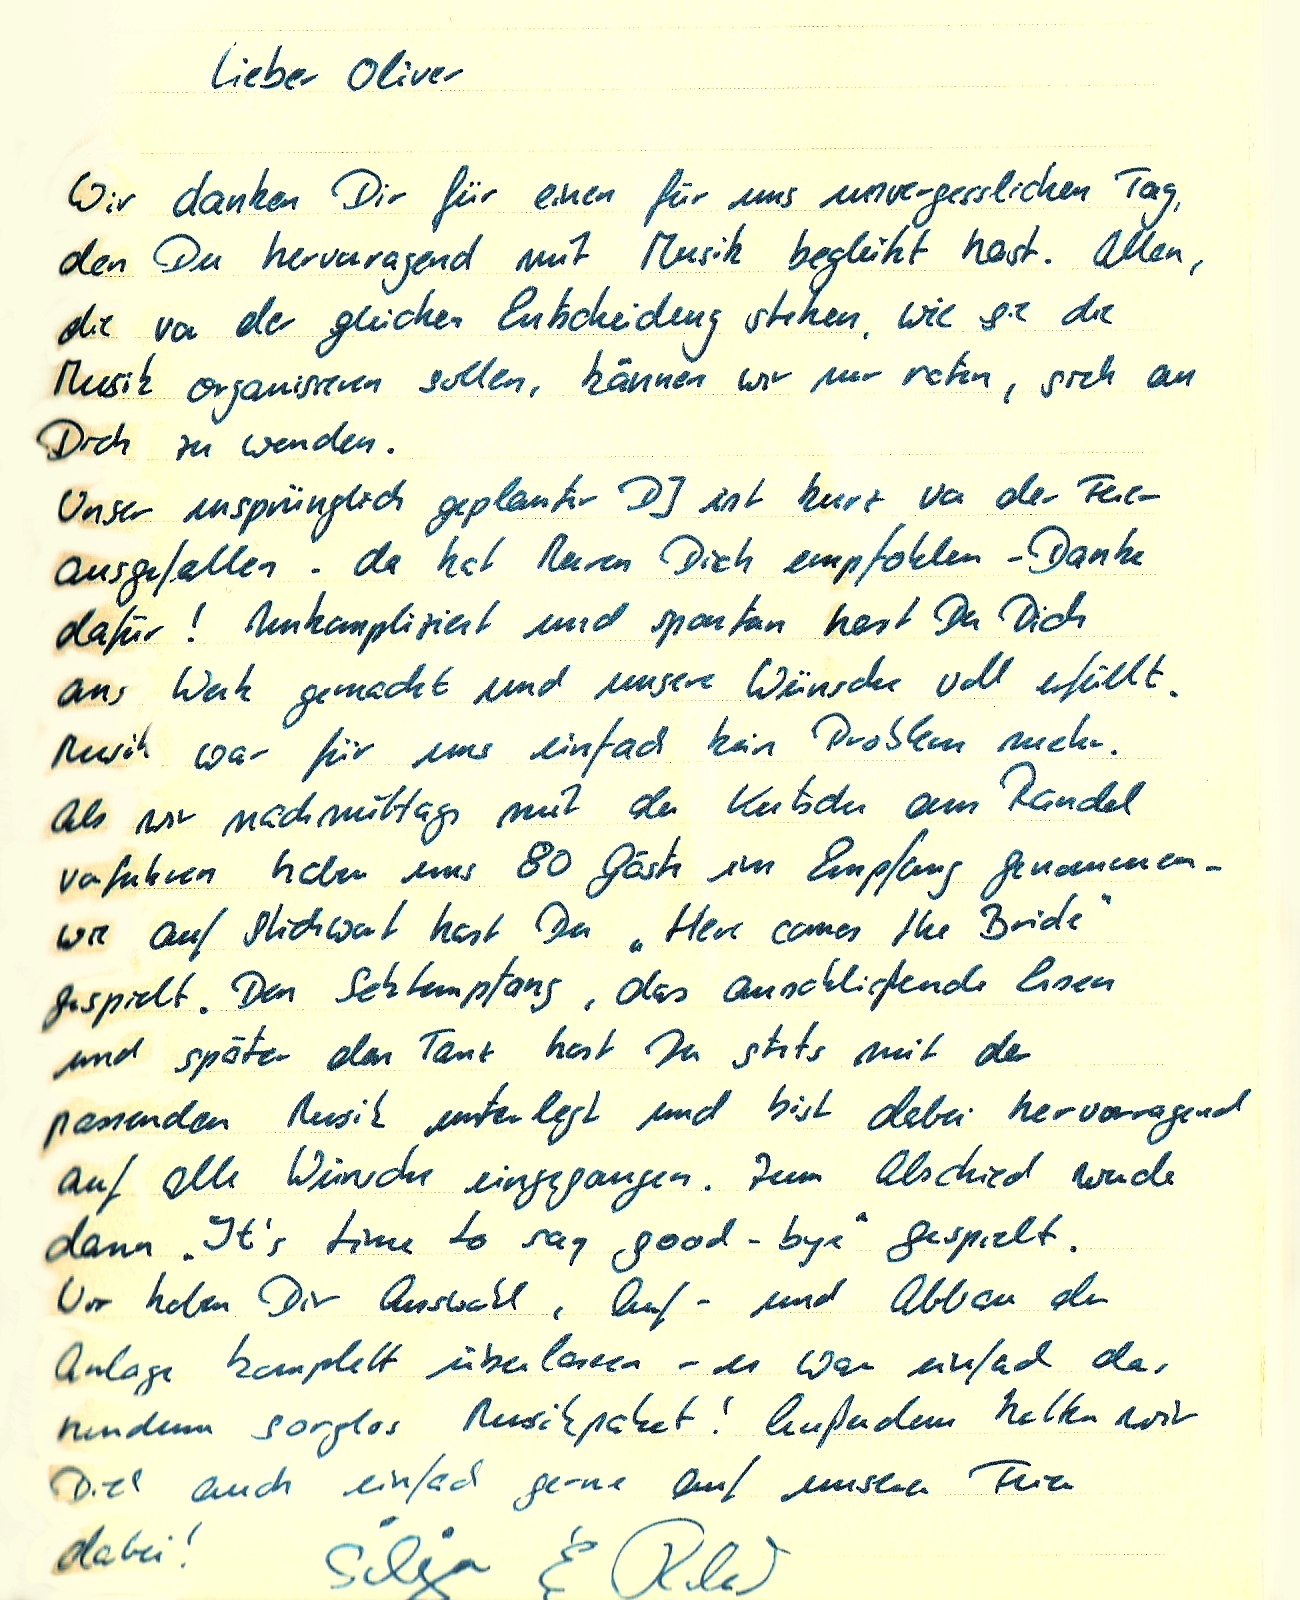 Lieber Oliver
Wir danken Dir für einen für uns unvergesslichen Tag,
den Du hervorragend mit Musik begleitet hast. Allen,
die vor der gleichen Entscheidung stehen, wie sie die
Musik organisieren sollen, können wir nur raten, sich an
Dich zu wenden.
Unser ursprünglich geplanter DJ ist kurz vor der Feier
ausgefallen - da hat Dich empfohlen - Danke
dafür! Unkompliziert und spontan hast Du Dich
ans Werk gemacht und unsere Wünsche voll erfüllt.
Musik war für uns einfach kein Problem mehr.
Als wir nachmittags mit der Kutsche am Kandel
vorfuhren haben uns 80 Gäste im Empfang genommen -
wie auf Stichwort hast Du „Here comes the Bride"
gespielt. Den Sektempfang, das anschließende Essen
und später den Tanz hast Du stets mit der
passenden Musik unterlegt und bist dabei hervorragend
auf alle Wünsche eingegangen. Zum Abschied wurde
dann „It's time to say good-bye" gespielt.
Wir haben Dir Auswahl, Auf- und Abbau der
Anlage komplett überlassen - es war einfach das
rundum sorglos Musikpaket! Außerdem hatten wir
Dich auch einfach gerne auf unserer Feier
dabei! Silija &